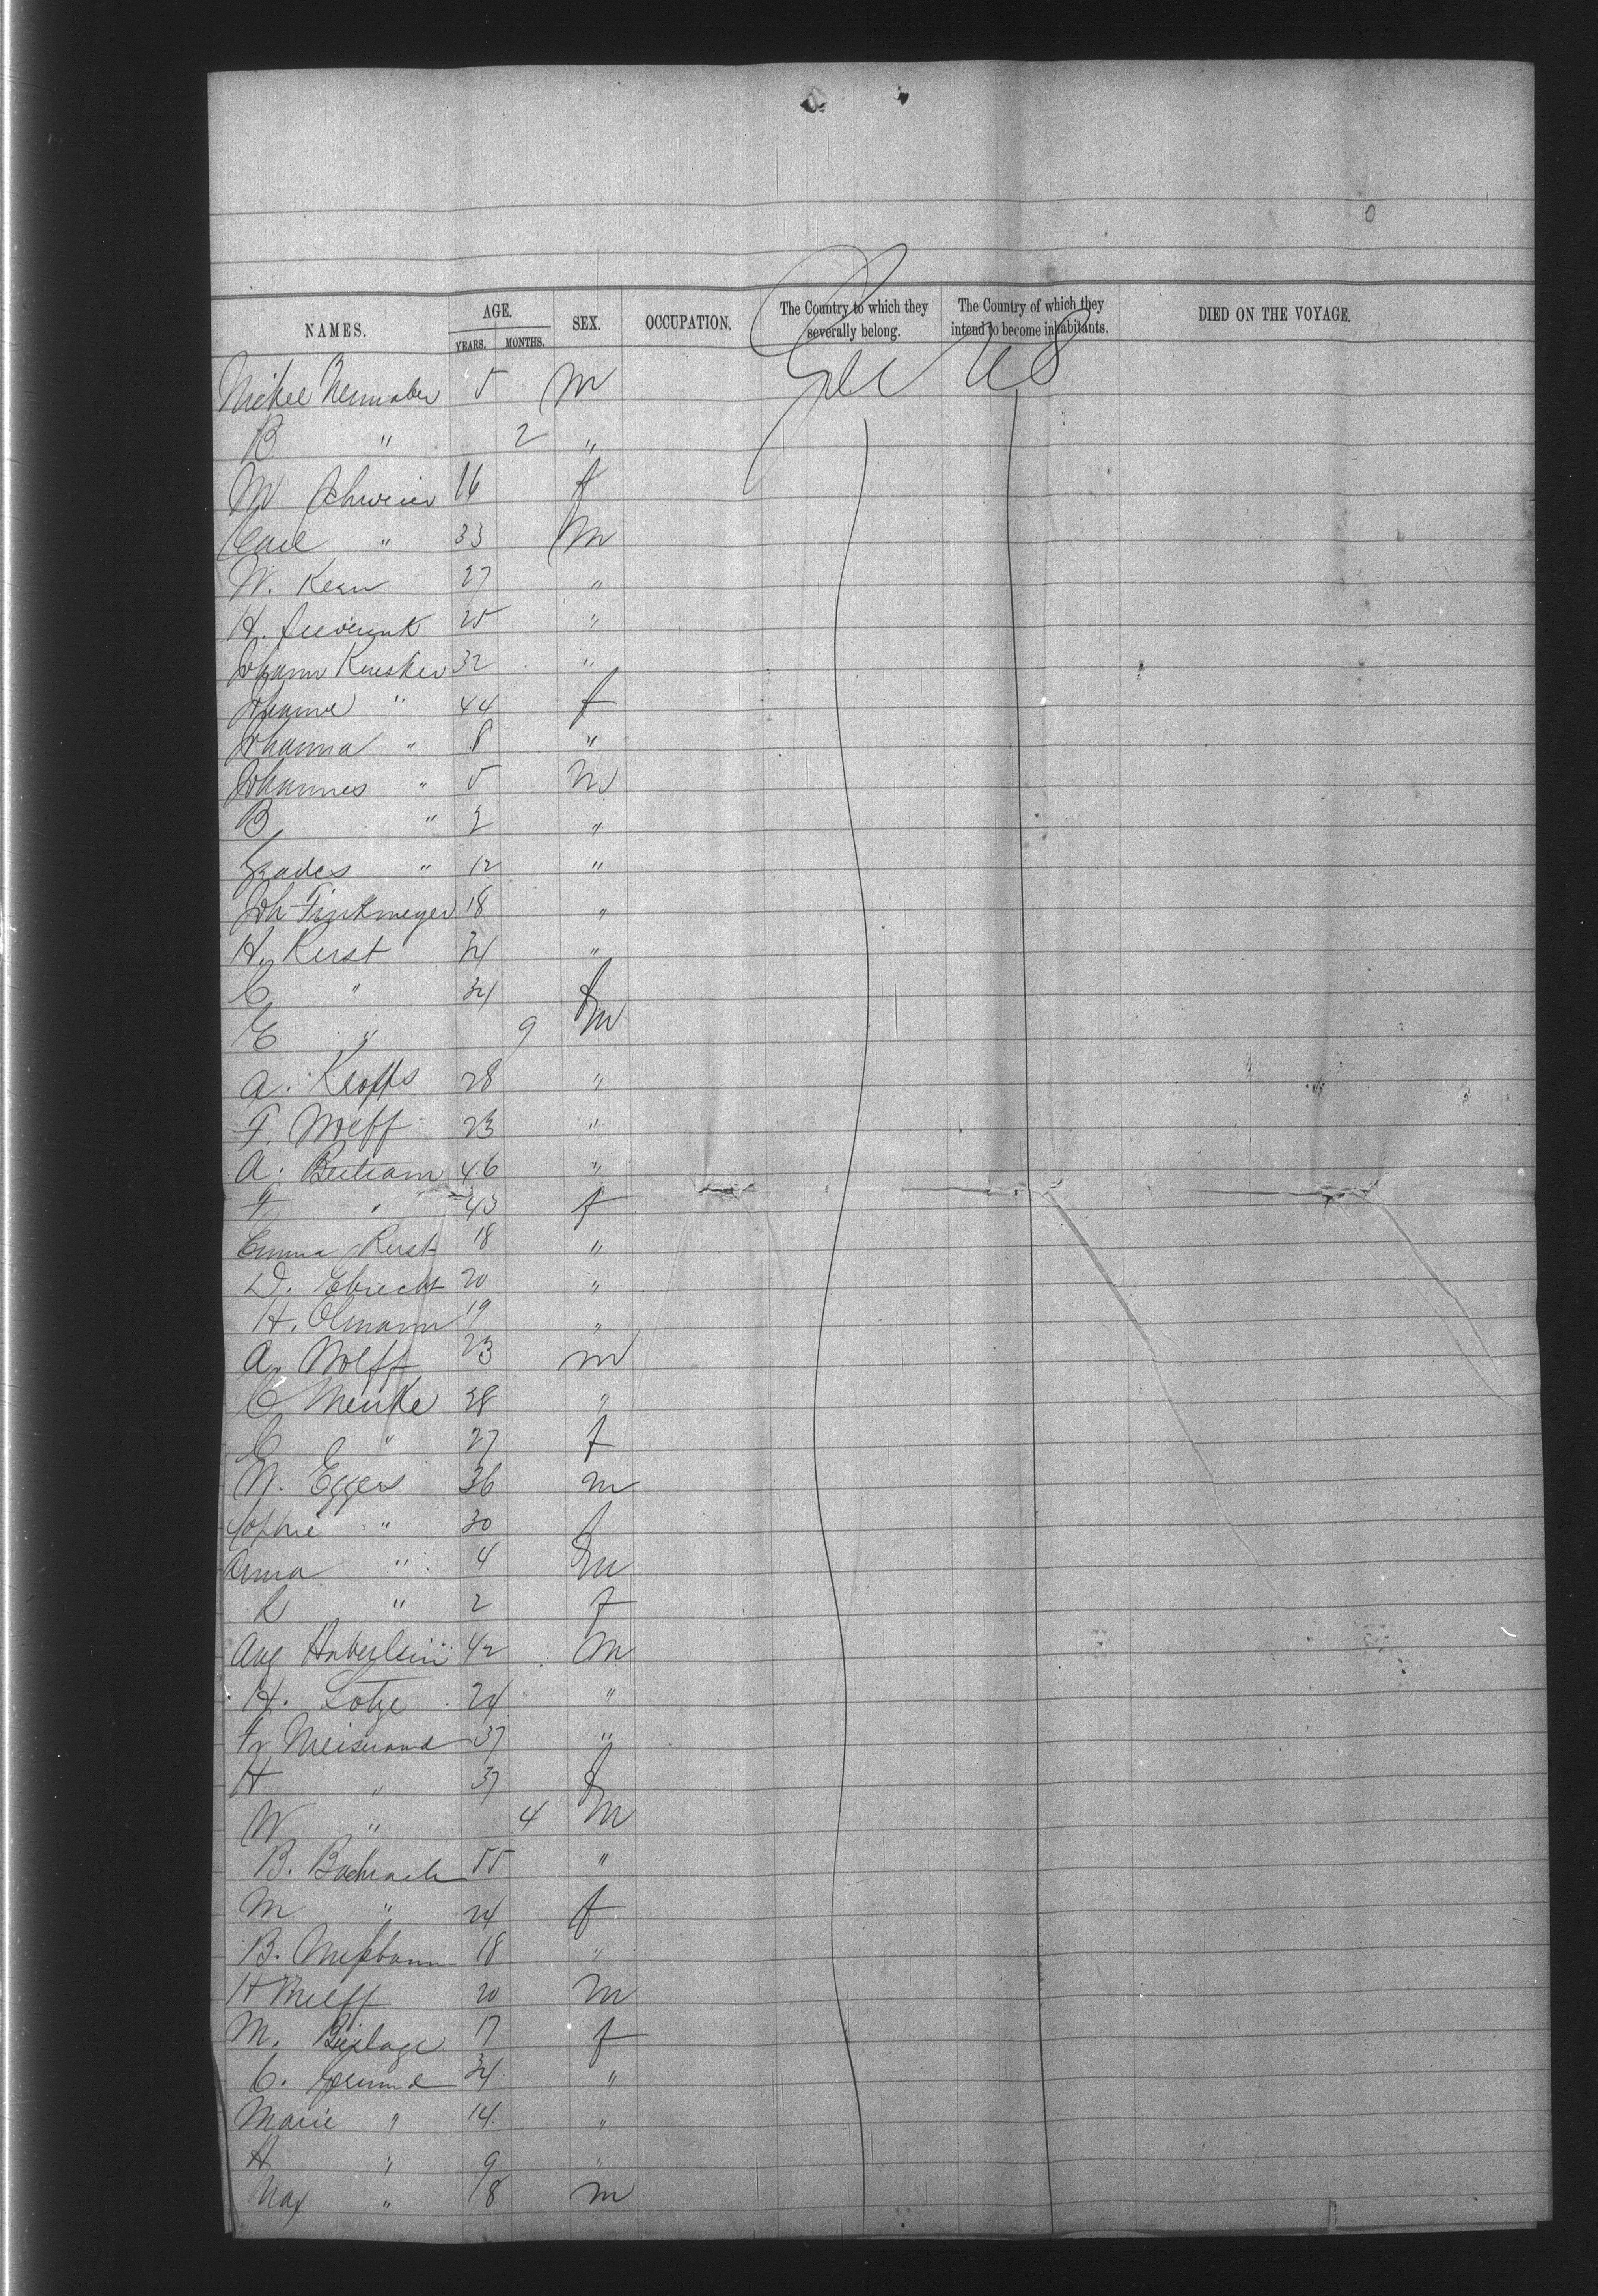 NAMES. AGE. SEX. OCCUPATION. The Country to which they severally belong. The Country of which they intend to become inhabitants. DIED ON THE VOYAGE.
YEARS. MONTHS.
5 m Ger US
B " 2 "
M 16 f
Carl " 33 m
W. Kern 27 "
H. 25 "
Johann 32 "
" 44 f
Johanna " 8 "
Johannes " 5 m
B " 2 "
" 12 "
Joh Finkmeyer 18 "
H. Kerst 34 "
C " 34 f
E " 9 m
A. 28 "
F. Wolff 23 "
A. Bertram 46 "
F " 43 f
Emma Kerst 18 "
D. Ebrecht 20 "
H. Olmann 19 "
A. Wolff 23 m
C Menke 28 "
C " 27 f
N. Eggers 36 m
Sophie " 30 f
Anna " 4 m
R " 2 f
Aug Haberlein 42 m
H. Lotze 24 "
Fr 37 "
H " 37 f
W " 4 m
B. Bachrach 55 "
M " 24 f
B. 18 "
H 20 m
M. 17 f
C. 34 "
Marie " 14 "
H " 9 "
Max " 8 m